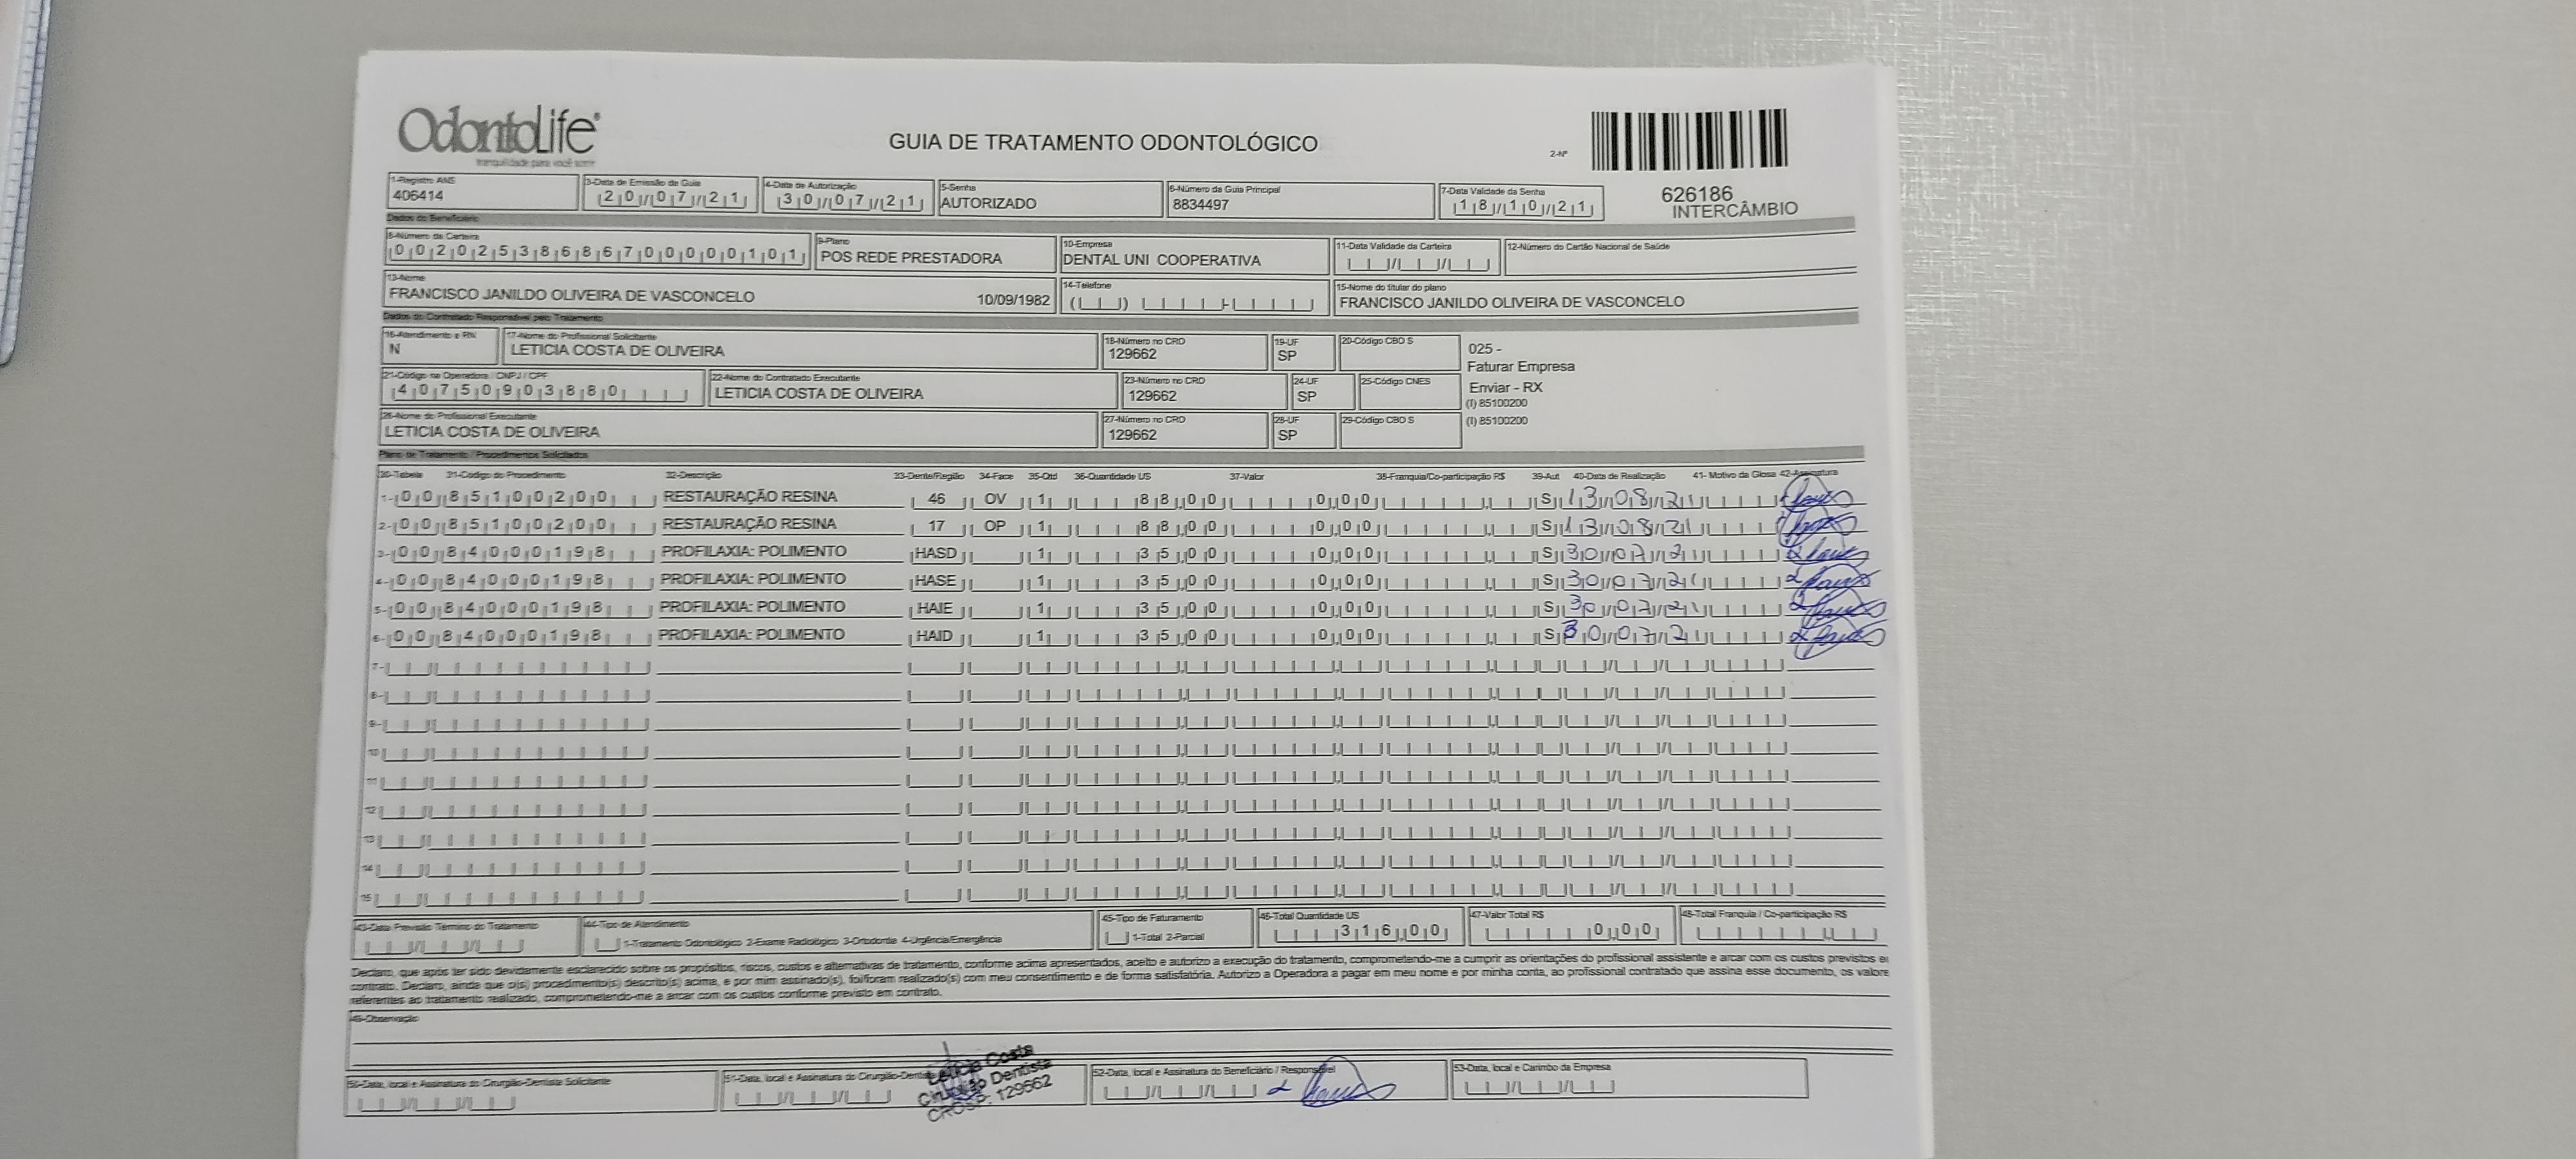 OdontoLife®
tranquilidade para você sorrir
GUIA DE TRATAMENTO ODONTOLÓGICO
2-Nº
626186
INTERCÂMBIO
1-Registro ANS 3-Data de Emissão da Guia 4-Data de Autorização 5-Senha 6-Número da Guia Principal 7-Data Validade da Senha
406414 20/07/21 30/07/21 AUTORIZADO 8834497 18/10/21
Dados do Beneficiário
8-Número da Carteira 9-Plano 10-Empresa 11-Data Validade da Carteira 12-Número do Cartão Nacional de Saúde
00202538686700000101 POS REDE PRESTADORA DENTAL UNI COOPERATIVA
13-Nome 14-Telefone 15-Nome do titular do plano
FRANCISCO JANILDO OLIVEIRA DE VASCONCELO 10/09/1982 FRANCISCO JANILDO OLIVEIRA DE VASCONCELO
Dados do Contratado Responsável pelo Tratamento
16-Atendimento a RN 17-Nome do Profissional Solicitante 18-Número no CRO 19-UF 20-Código CBO S
N LETICIA COSTA DE OLIVEIRA 129662 SP
025 -
Faturar Empresa
Enviar - RX
(I) 85100200
(I) 85100200
21-Código na Operadora / CNPJ / CPF 22-Nome do Contratado Executante 23-Número no CRO 24-UF 25-Código CNES
40750903880 LETICIA COSTA DE OLIVEIRA 129662 SP
26-Nome do Profissional Executante 27-Número no CRO 28-UF 29-Código CBO S
LETICIA COSTA DE OLIVEIRA 129662 SP
Plano de Tratamento / Procedimentos Solicitados
30-Tabela 31-Código do Procedimento 32-Descrição 33-Dente/Região 34-Face 35-Qtd 36-Quantidade US 37-Valor 38-Franquia/Co-participação R$ 39-Aut 40-Data de Realização 41- Motivo da Glosa 42-Assinatura
1- 00 85100200 RESTAURAÇÃO RESINA 46 OV 1 88,00 0,00 S 13/08/21
2- 00 85100200 RESTAURAÇÃO RESINA 17 OP 1 88,00 0,00 S 13/08/21
3- 00 84000198 PROFILAXIA: POLIMENTO HASD 1 35,00 0,00 S 30/07/21
4- 00 84000198 PROFILAXIA: POLIMENTO HASE 1 35,00 0,00 S 30/07/21
5- 00 84000198 PROFILAXIA: POLIMENTO HAIE 1 35,00 0,00 S 30/07/21
6- 00 84000198 PROFILAXIA: POLIMENTO HAID 1 35,00 0,00 S 30/07/21
7-
8-
9-
10
11
12
13
14
15
43-Data Previsão Término do Tratamento 44-Tipo de Atendimento 45-Tipo de Faturamento 46-Total Quantidade US 47-Valor Total R$ 48-Total Franquia / Co-participação R$
1-Tratamento Odontológico 2-Exame Radiológico 3-Ortodontia 4-Urgência/Emergência 1-Total 2-Parcial 316,00 0,00
Declaro, que após ter sido devidamente esclarecido sobre os propósitos, riscos, custos e alternativas de tratamento, conforme acima apresentados, aceito e autorizo a execução do tratamento, comprometendo-me a cumprir as orientações do profissional assistente e arcar com os custos previstos e
contrato. Declaro, ainda que o(s) procedimento(s) descrito(s) acima, e por mim assinado(s), foi/foram realizado(s) com meu consentimento e de forma satisfatória. Autorizo a Operadora a pagar em meu nome e por minha conta, ao profissional contratado que assina esse documento, os valore
referentes ao tratamento realizado, comprometendo-me a arcar com os custos conforme previsto em contrato.
49-Observação
50-Data, local e Assinatura do Cirurgião-Dentista Solicitante 51-Data, local e Assinatura do Cirurgião-Dentista 52-Data, local e Assinatura do Beneficiário / Responsável 53-Data, local e Carimbo da Empresa
Leticia Costa
Cirurgião Dentista
CROSP: 129662